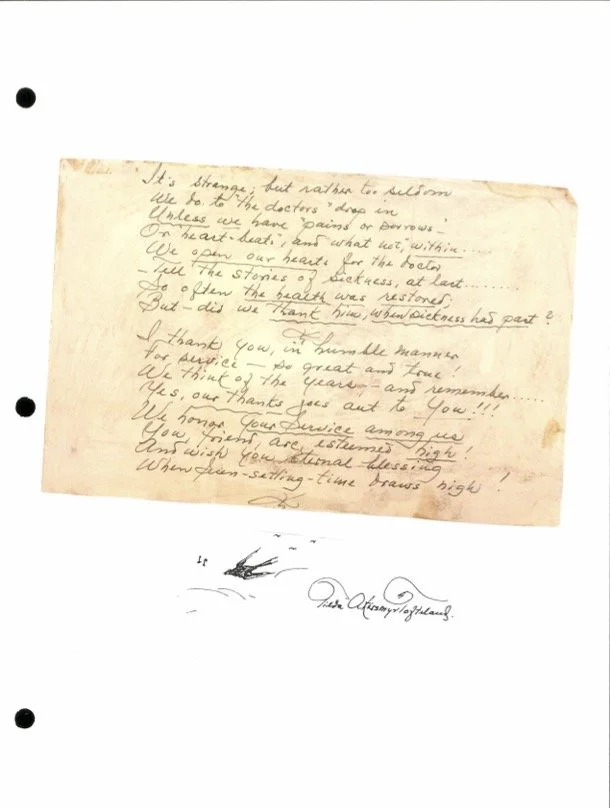 It's strange, but rather too seldom
We do to "the doctors" drop in
Unless we have "pains or sorrows"-
Or heart-beats", and what not, "within....
We open our hearts for the doctor
- Tell the stories of sickness, at last........
So often the health was restored,
But - did we thank him, when sickness had past?
I thank you, in humble manner
for service - so great and true!
We think of the years, - and remember.....
Yes, our thanks goes out to You!!!
We honor your service among us
You, friend, are esteemed high!
And wish you eternal blessing
When sun-setting-time draws nigh!
Tilda